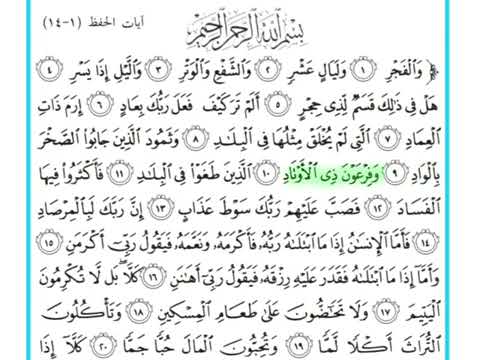 آيات الحفظ (١-١٤)
بِسْمِ اللَّهِ الرَّحْمَٰنِ الرَّحِيمِ
﴿ وَالْفَجْرِ ١ وَلَيَالٍ عَشْرٍ ٢ وَالشَّفْعِ وَالْوَتْرِ ٣ وَاللَّيْلِ إِذَا يَسْرِ ٤
هَلْ فِي ذَٰلِكَ قَسَمٌ لِّذِي حِجْرٍ ٥ أَلَمْ تَرَ كَيْفَ فَعَلَ رَبُّكَ بِعَادٍ ٦ إِرَمَ ذَاتِ
الْعِمَادِ ٧ الَّتِي لَمْ يُخْلَقْ مِثْلُهَا فِي الْبِلَادِ ٨ وَثَمُودَ الَّذِينَ جَابُوا الصَّخْرَ
بِالْوَادِ ٩ وَفِرْعَوْنَ ذِي الْأَوْتَادِ ١٠ الَّذِينَ طَغَوْا فِي الْبِلَادِ ١١ فَأَكْثَرُوا فِيهَا
الْفَسَادَ ١٢ فَصَبَّ عَلَيْهِمْ رَبُّكَ سَوْطَ عَذَابٍ ١٣ إِنَّ رَبَّكَ لَبِالْمِرْصَادِ
١٤ فَأَمَّا الْإِنسَانُ إِذَا مَا ابْتَلَاهُ رَبُّهُ فَأَكْرَمَهُ وَنَعَّمَهُ فَيَقُولُ رَبِّي أَكْرَمَنِ ١٥
وَأَمَّا إِذَا مَا ابْتَلَاهُ فَقَدَرَ عَلَيْهِ رِزْقَهُ فَيَقُولُ رَبِّي أَهَانَنِ ١٦ كَلَّا بَل لَّا تُكْرِمُونَ
الْيَتِيمَ ١٧ وَلَا تَحَاضُّونَ عَلَىٰ طَعَامِ الْمِسْكِينِ ١٨ وَتَأْكُلُونَ
التُّرَاثَ أَكْلًا لَّمًّا ١٩ وَتُحِبُّونَ الْمَالَ حُبًّا جَمًّا ٢٠ كَلَّا إِذَا